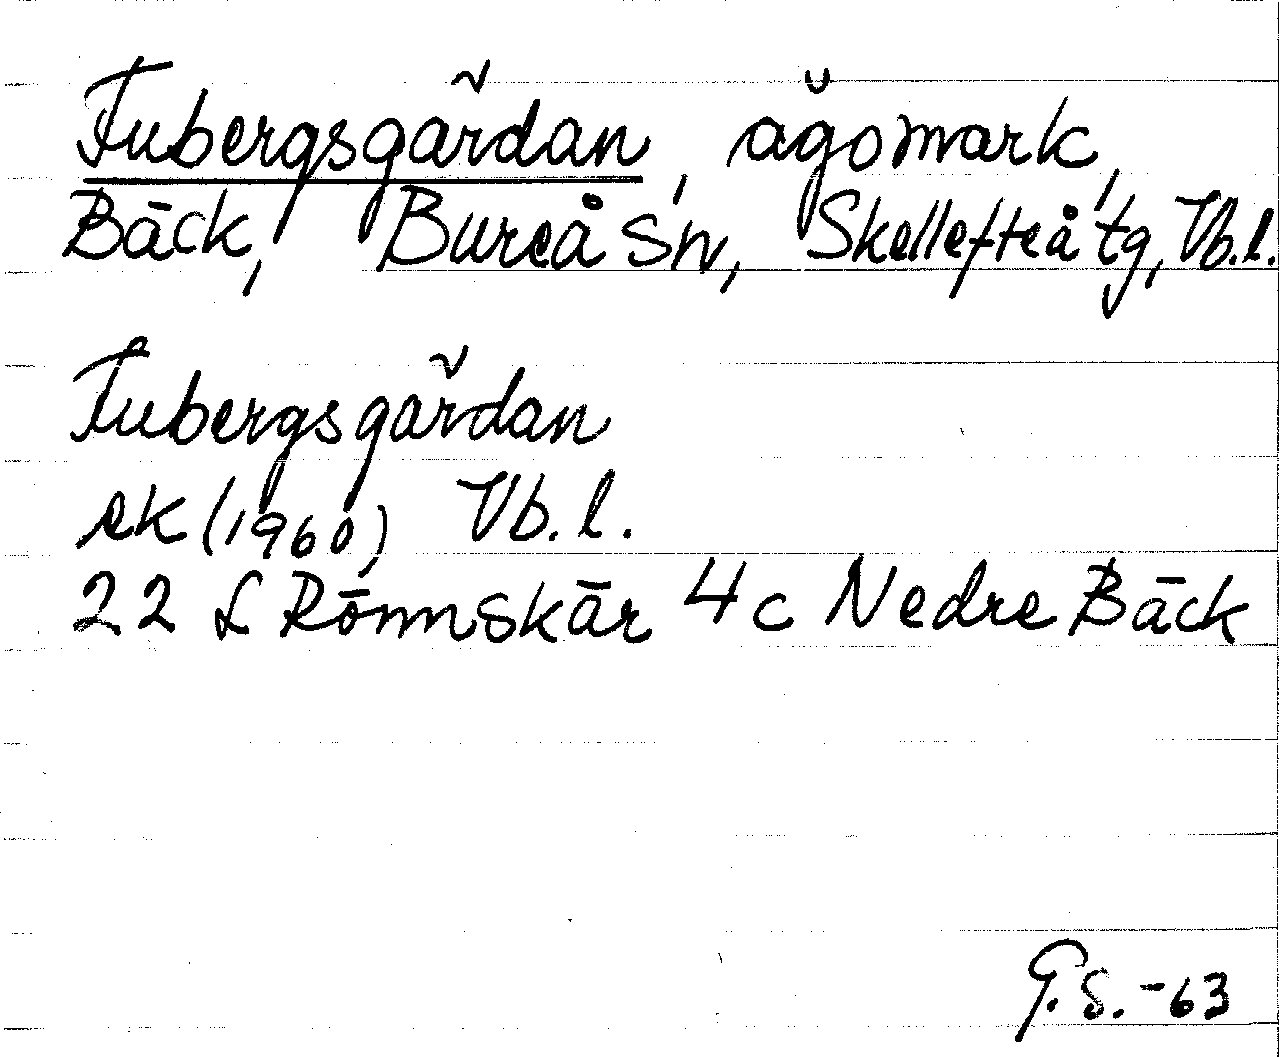 Tubergsgärdan, ägomark,
Bäck, Bureå sn, Skellefteå tg, Vb.l.
Tubergsgärdan
ek (1960) Vb.l.
22 L Rönnskär 4c Nedre Bäck
G.S.-63